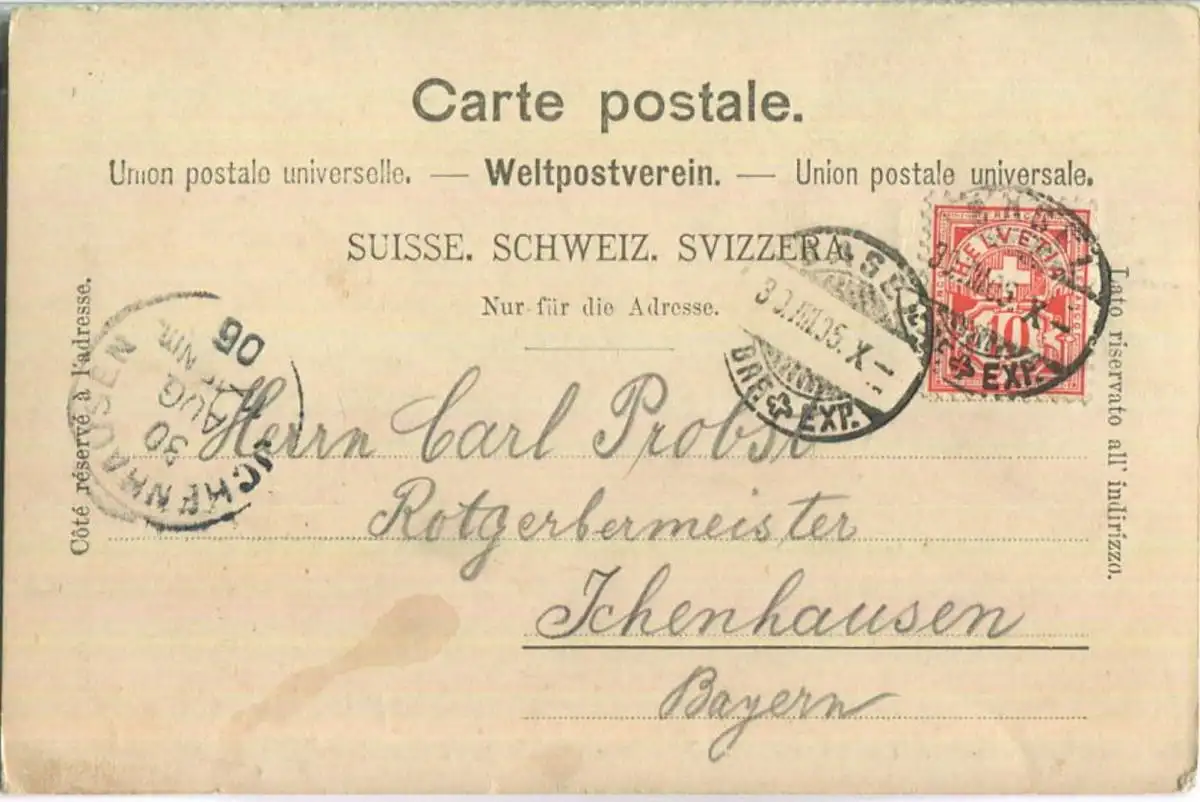 Carte postale.
Union postale universelle. — Weltpostverein. — Union postale universale.
SUISSE. SCHWEIZ. SVIZZERA.
Nur für die Adresse.
Côté réservé à l'adresse.
Lato riservato all' indirizzo.
HELVETIA
10
BASEL
30.VIII.05. X–
BRF EXP.
30.VIII.05. X–
EXP.
ICHENHAUSEN
30
AUG
Nm.
05
Herrn Carl Probst
Rotgerbermeister
Ichenhausen
Bayern